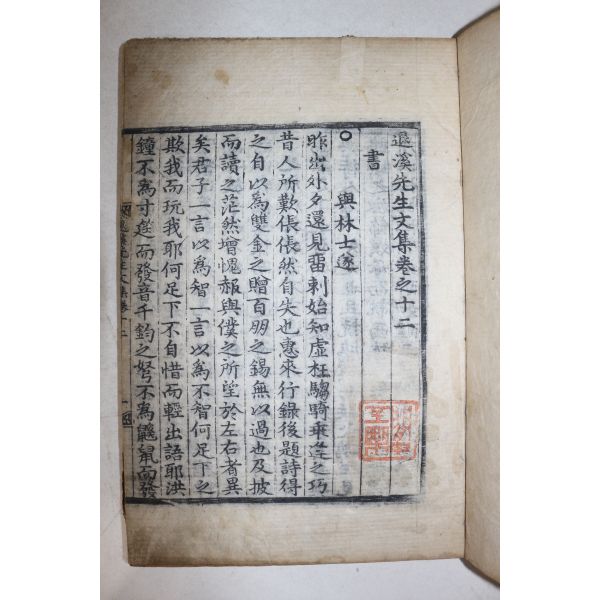 退溪先生文集卷之十二
書
○ 與林士遂
昨出外夕還見留刺始知虛枉騶騎乖逢之巧
昔人所歎悵悵然自失也惠來行錄後題詩得
之自以為雙金之贈百朋之錫無以過也及披
而讀之茫然增愧赧與僕之所望於左右者異
矣君子一言以為智一言以為不智何足下之
欺我而玩我耶何足下不自惜而輕出語耶洪
鐘不為寸莛而發音千鈞之弩不為鼷鼠而發